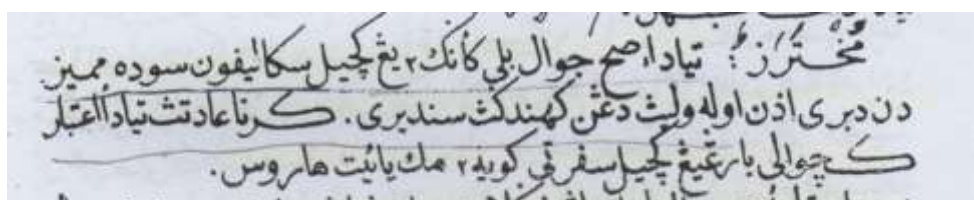 مختررز؛ تياد اصح جوال بلي كأنك٢ يڠ كچيل سكاليڤون سوده مميز
دن دبري اذن اوله وليڽ دڠن كهندكڽ سنديري. كرنا عادتڽ تياد اعتبار
كچوالي بارڠيڠ كچيل سڤرتي كويه٢ مك يائيت هاروس.